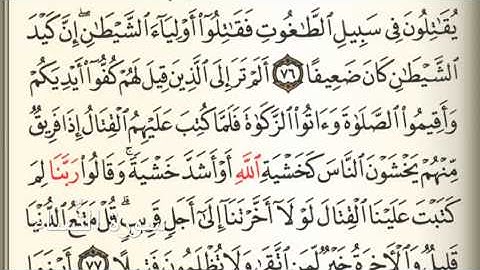 يُقَٰتِلُونَ فِى سَبِيلِ ٱلطَّٰغُوتِ فَقَٰتِلُوٓا۟ أَوْلِيَآءَ ٱلشَّيْطَٰنِ ۖ إِنَّ كَيْدَ
ٱلشَّيْطَٰنِ كَانَ ضَعِيفًا ٧٦ أَلَمْ تَرَ إِلَى ٱلَّذِينَ قِيلَ لَهُمْ كُفُّوٓا۟ أَيْدِيَكُمْ
وَأَقِيمُوا۟ ٱلصَّلَوٰةَ وَءَاتُوا۟ ٱلزَّكَوٰةَ فَلَمَّا كُتِبَ عَلَيْهِمُ ٱلْقِتَالُ إِذَا فَرِيقٌ
مِّنْهُمْ يَخْشَوْنَ ٱلنَّاسَ كَخَشْيَةِ ٱللَّهِ أَوْ أَشَدَّ خَشْيَةً ۚ وَقَالُوا۟ رَبَّنَا لِمَ
كَتَبْتَ عَلَيْنَا ٱلْقِتَالَ لَوْلَآ أَخَّرْتَنَآ إِلَىٰٓ أَجَلٍ قَرِيبٍ ۗ قُلْ مَتَٰعُ ٱلدُّنْيَا
قَلِيلٌ وَٱلْءَاخِرَةُ خَيْرٌ لِّمَنِ ٱتَّقَىٰ وَلَا تُظْلَمُونَ فَتِيلًا ٧٧ أَيْنَمَا